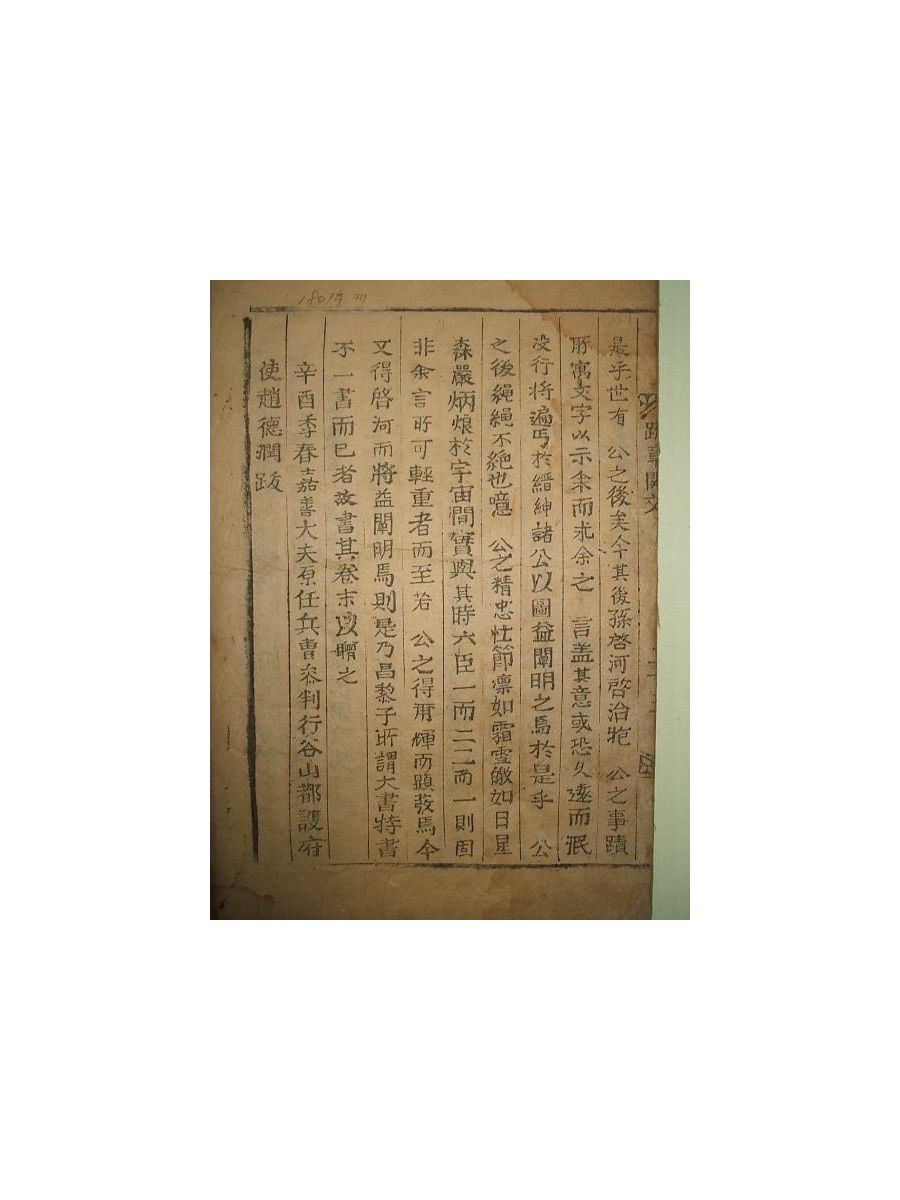 是乎世有 公之後矣今其後孫啓河啓治抱 公之事蹟
所寓文字以示余而求余之 言盖其意或恐久遠而泯
沒行將遍丐於縉紳諸公以圖益闡明之焉於是乎 公
之後繩繩不絶也噫 公之精忠壯節凛如霜雪皦如日星
森嚴炳烺於宇宙間實與其時六臣一而二二而一則固
非余言所可輕重者而至若 公之得用輝而顕發焉今
文得啓河而將益闡明焉則是乃昌黎子所謂大書特書
不一書而已者故書其卷末以贈之
辛酉季春嘉善大夫原任兵曹叅判行谷山都護府
使趙德潤跋
1801年